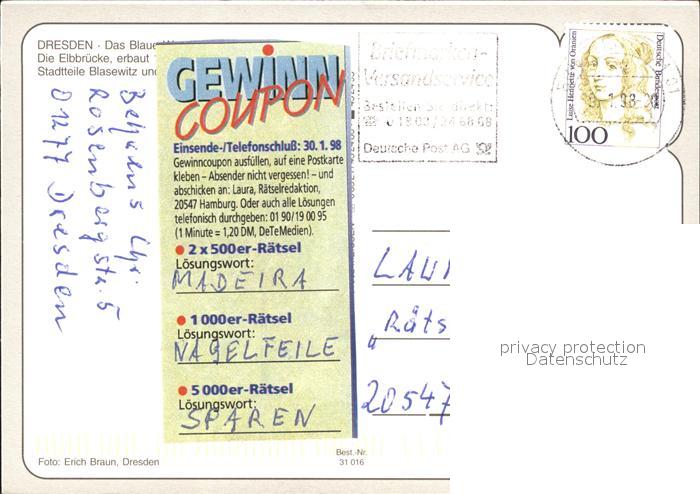 DRESDEN · Das Blaue
Die Elbbrücke, erbaut
Stadtteile Blasewitz und
Behrens Chr.
Rosenbergstr. 5
01277 Dresden
GEWINN
COUPON
Einsende-/Telefonschluß: 30.1.98
Gewinncoupon ausfüllen, auf eine Postkarte
kleben – Absender nicht vergessen! – und
abschicken an: Laura, Rätselredaktion,
20547 Hamburg. Oder auch alle Lösungen
telefonisch durchgeben: 01 90/19 00 95
(1 Minute = 1,20 DM, DeTeMedien).
2 x 500er-Rätsel
Lösungswort:
MADEIRA
1 000er-Rätsel
Lösungswort:
NAGELFEILE
5 000er-Rätsel
Lösungswort:
SPAREN
Briefmarken-
Versandservice
Bestellen Sie direkt:
Deutsche Post AG
Luise Henriette von Oranien
Deutsche Bundespost
100
1.98
"Räts
20547
privacy protection
Datenschutz
Foto: Erich Braun, Dresden
Best.-Nr.
31 016